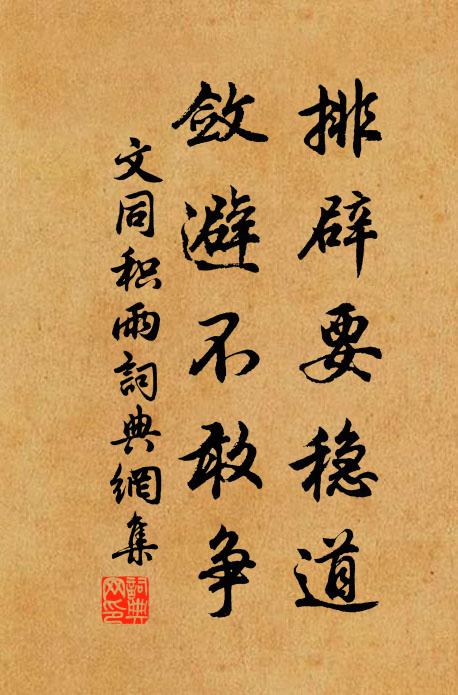 排辟要稳道
敛避不敢争
文同积雨詞典網集
詞典网印